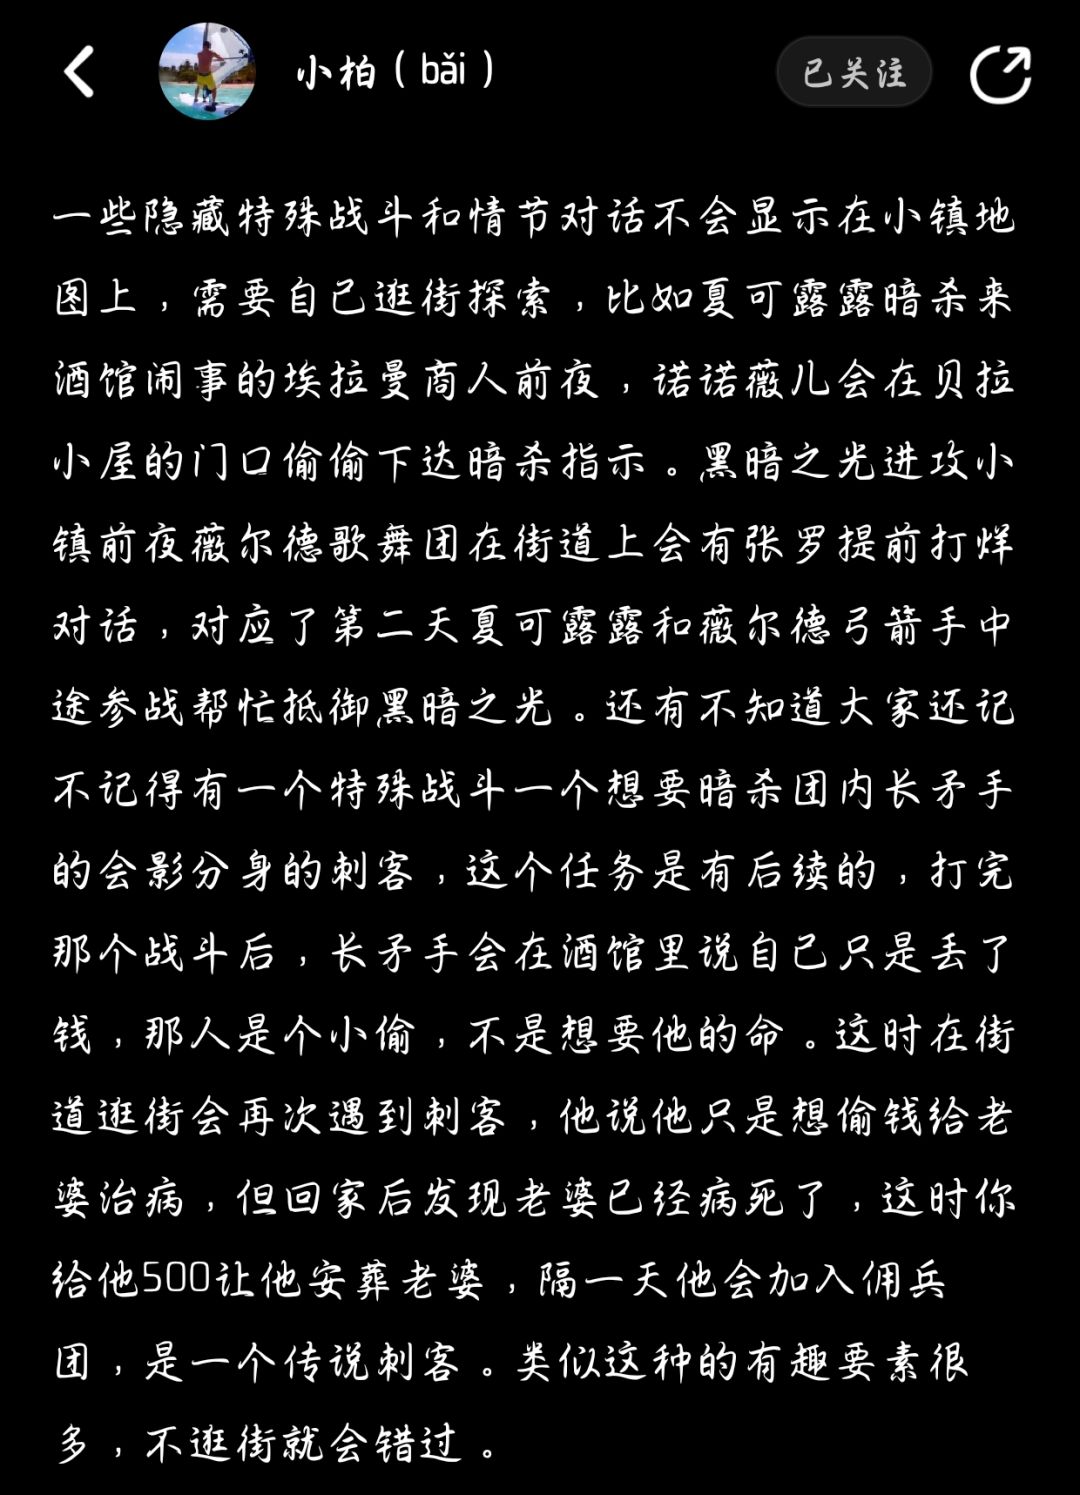 小柏（bǎi）
已关注
一些隐藏特殊战斗和情节对话不会显示在小镇地
图上，需要自己逛街探索，比如夏可露露暗杀来
酒馆闹事的埃拉曼商人前夜，诺诺薇儿会在贝拉
小屋的门口偷偷下达暗杀指示。黑暗之光进攻小
镇前夜薇尔德歌舞团在街道上会有张罗提前打烊
对话，对应了第二天夏可露露和薇尔德弓箭手中
途参战帮忙抵御黑暗之光。还有不知道大家还记
不记得有一个特殊战斗一个想要暗杀团内长矛手
的会影分身的刺客，这个任务是有后续的，打完
那个战斗后，长矛手会在酒馆里说自己只是丢了
钱，那人是个小偷，不是想要他的命。这时在街
道逛街会再次遇到刺客，他说他只是想偷钱给老
婆治病，但回家后发现老婆已经病死了，这时你
给他500让他安葬老婆，隔一天他会加入佣兵
团，是一个传说刺客。类似这种的有趣要素很
多，不逛街就会错过。